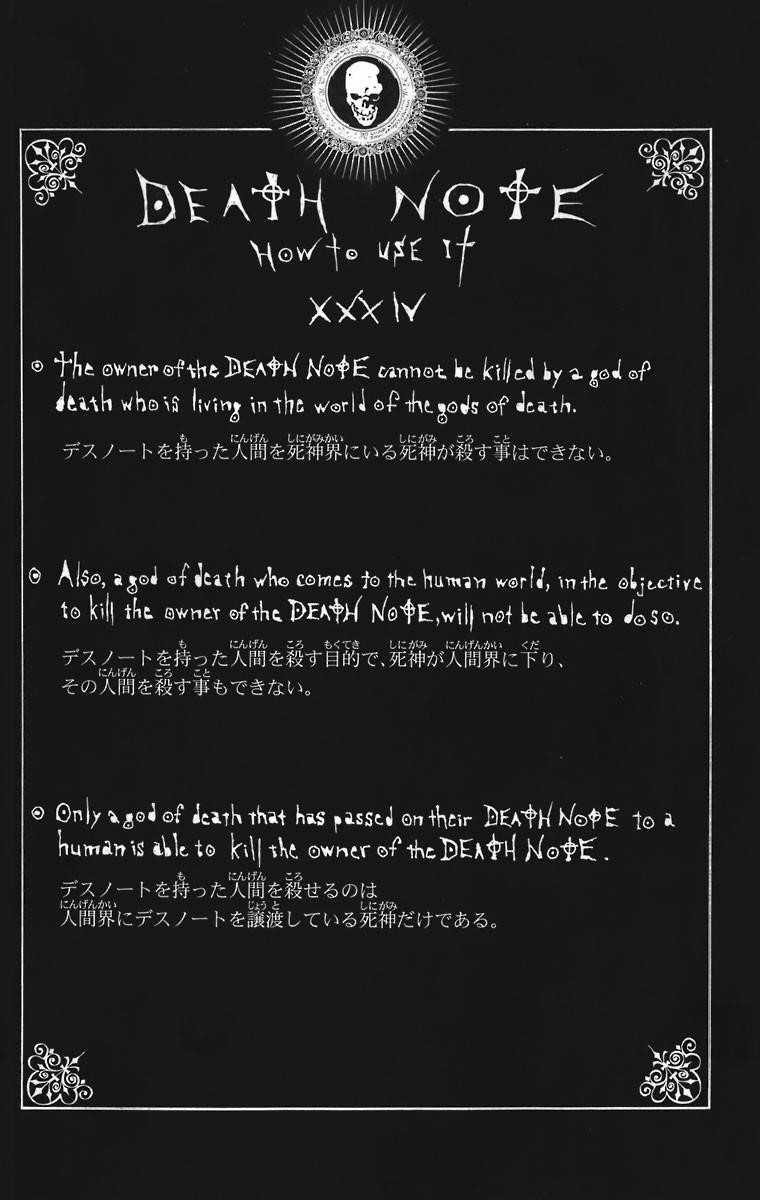 DEATH NOTE
HOW to USE It
XXXIV
The owner of the DEATH NOTE cannot be killed by a god of
death who is living in the world of the gods of death.
デスノートを持った人間を死神界にいる死神が殺す事はできない。
Also, a god of death who comes to the human world, in the objective
to kill the owner of the DEATH NOTE, will not be able to do so.
デスノートを持った人間を殺す目的で、死神が人間界に下り、
その人間を殺す事もできない。
Only a god of death that has passed on their DEATH NOTE to a
human is able to kill the owner of the DEATH NOTE.
デスノートを持った人間を殺せるのは
人間界にデスノートを譲渡している死神だけである。